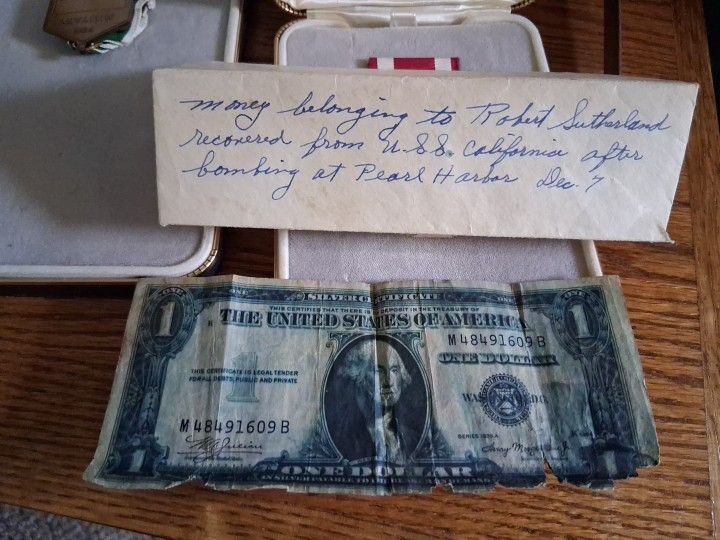 money belonging to Robert Sutherland
recovered from U.S.S. California after
bombing at Pearl Harbor Dec. 7
ONE
SILVER CERTIFICATE
ONE
THIS CERTIFIES THAT THERE IS ON DEPOSIT IN THE TREASURY OF
THE UNITED STATES OF AMERICA
1
1
M 48491609 B
ONE DOLLAR
1
THIS CERTIFICATE IS LEGAL TENDER
FOR ALL DEBTS, PUBLIC AND PRIVATE
WASHINGTON, D.C.
M 48491609 B
SERIES 1935 A
1
1
ONE DOLLAR
IN SILVER PAYABLE TO THE BEARER ON DEMAND